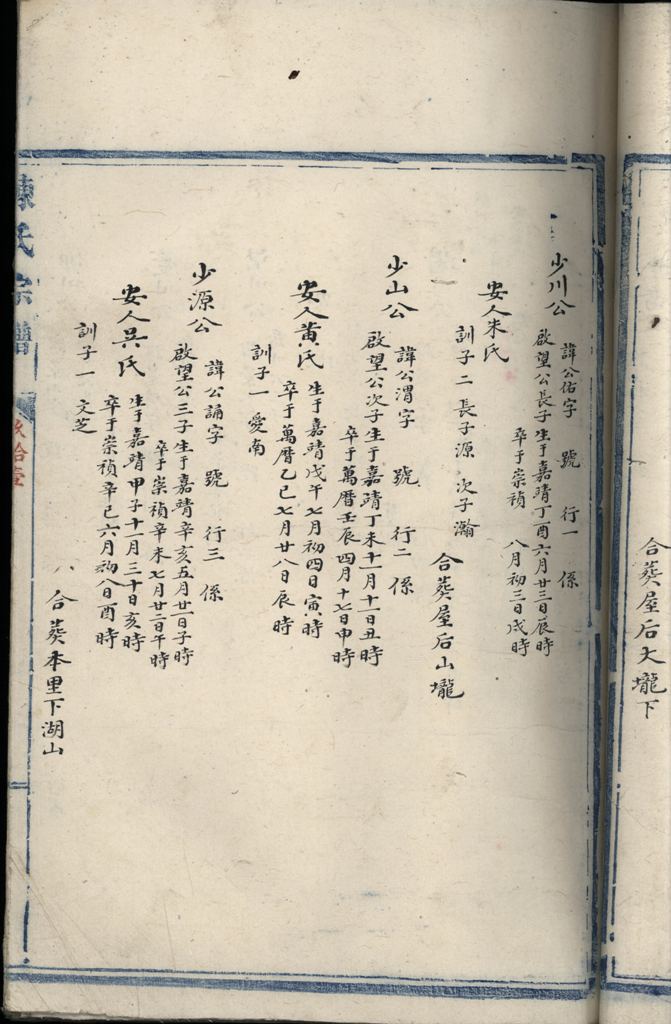 合葬屋后大壠下
少川公 諱公佑字 號 行一 係
啟望公長子生于嘉靖丁酉六月廿三日辰時
卒于崇禎 八月初三日戌時
安人朱氏
訓子二 長子源 次子瀚
合葬屋后山壠
少山公 諱公渭字 號 行二 係
啟望公次子生于嘉靖丁未十一月十一日丑時
卒于萬曆壬辰四月十七日申時
安人黃氏 生于嘉靖戊午七月初四日寅時
卒于萬曆乙巳七月廿八日辰時
訓子一 愛南
少源公 諱公誦字 號 行三 係
啟望公三子生于嘉靖辛亥五月廿一日子時
卒于崇禎辛未七月廿二日午時
安人吳氏 生于嘉靖甲子十一月三十日亥時
卒于崇禎辛巳六月初八日酉時
訓子一 文芝
合葬本里下湖山
氏宗譜
拾壹